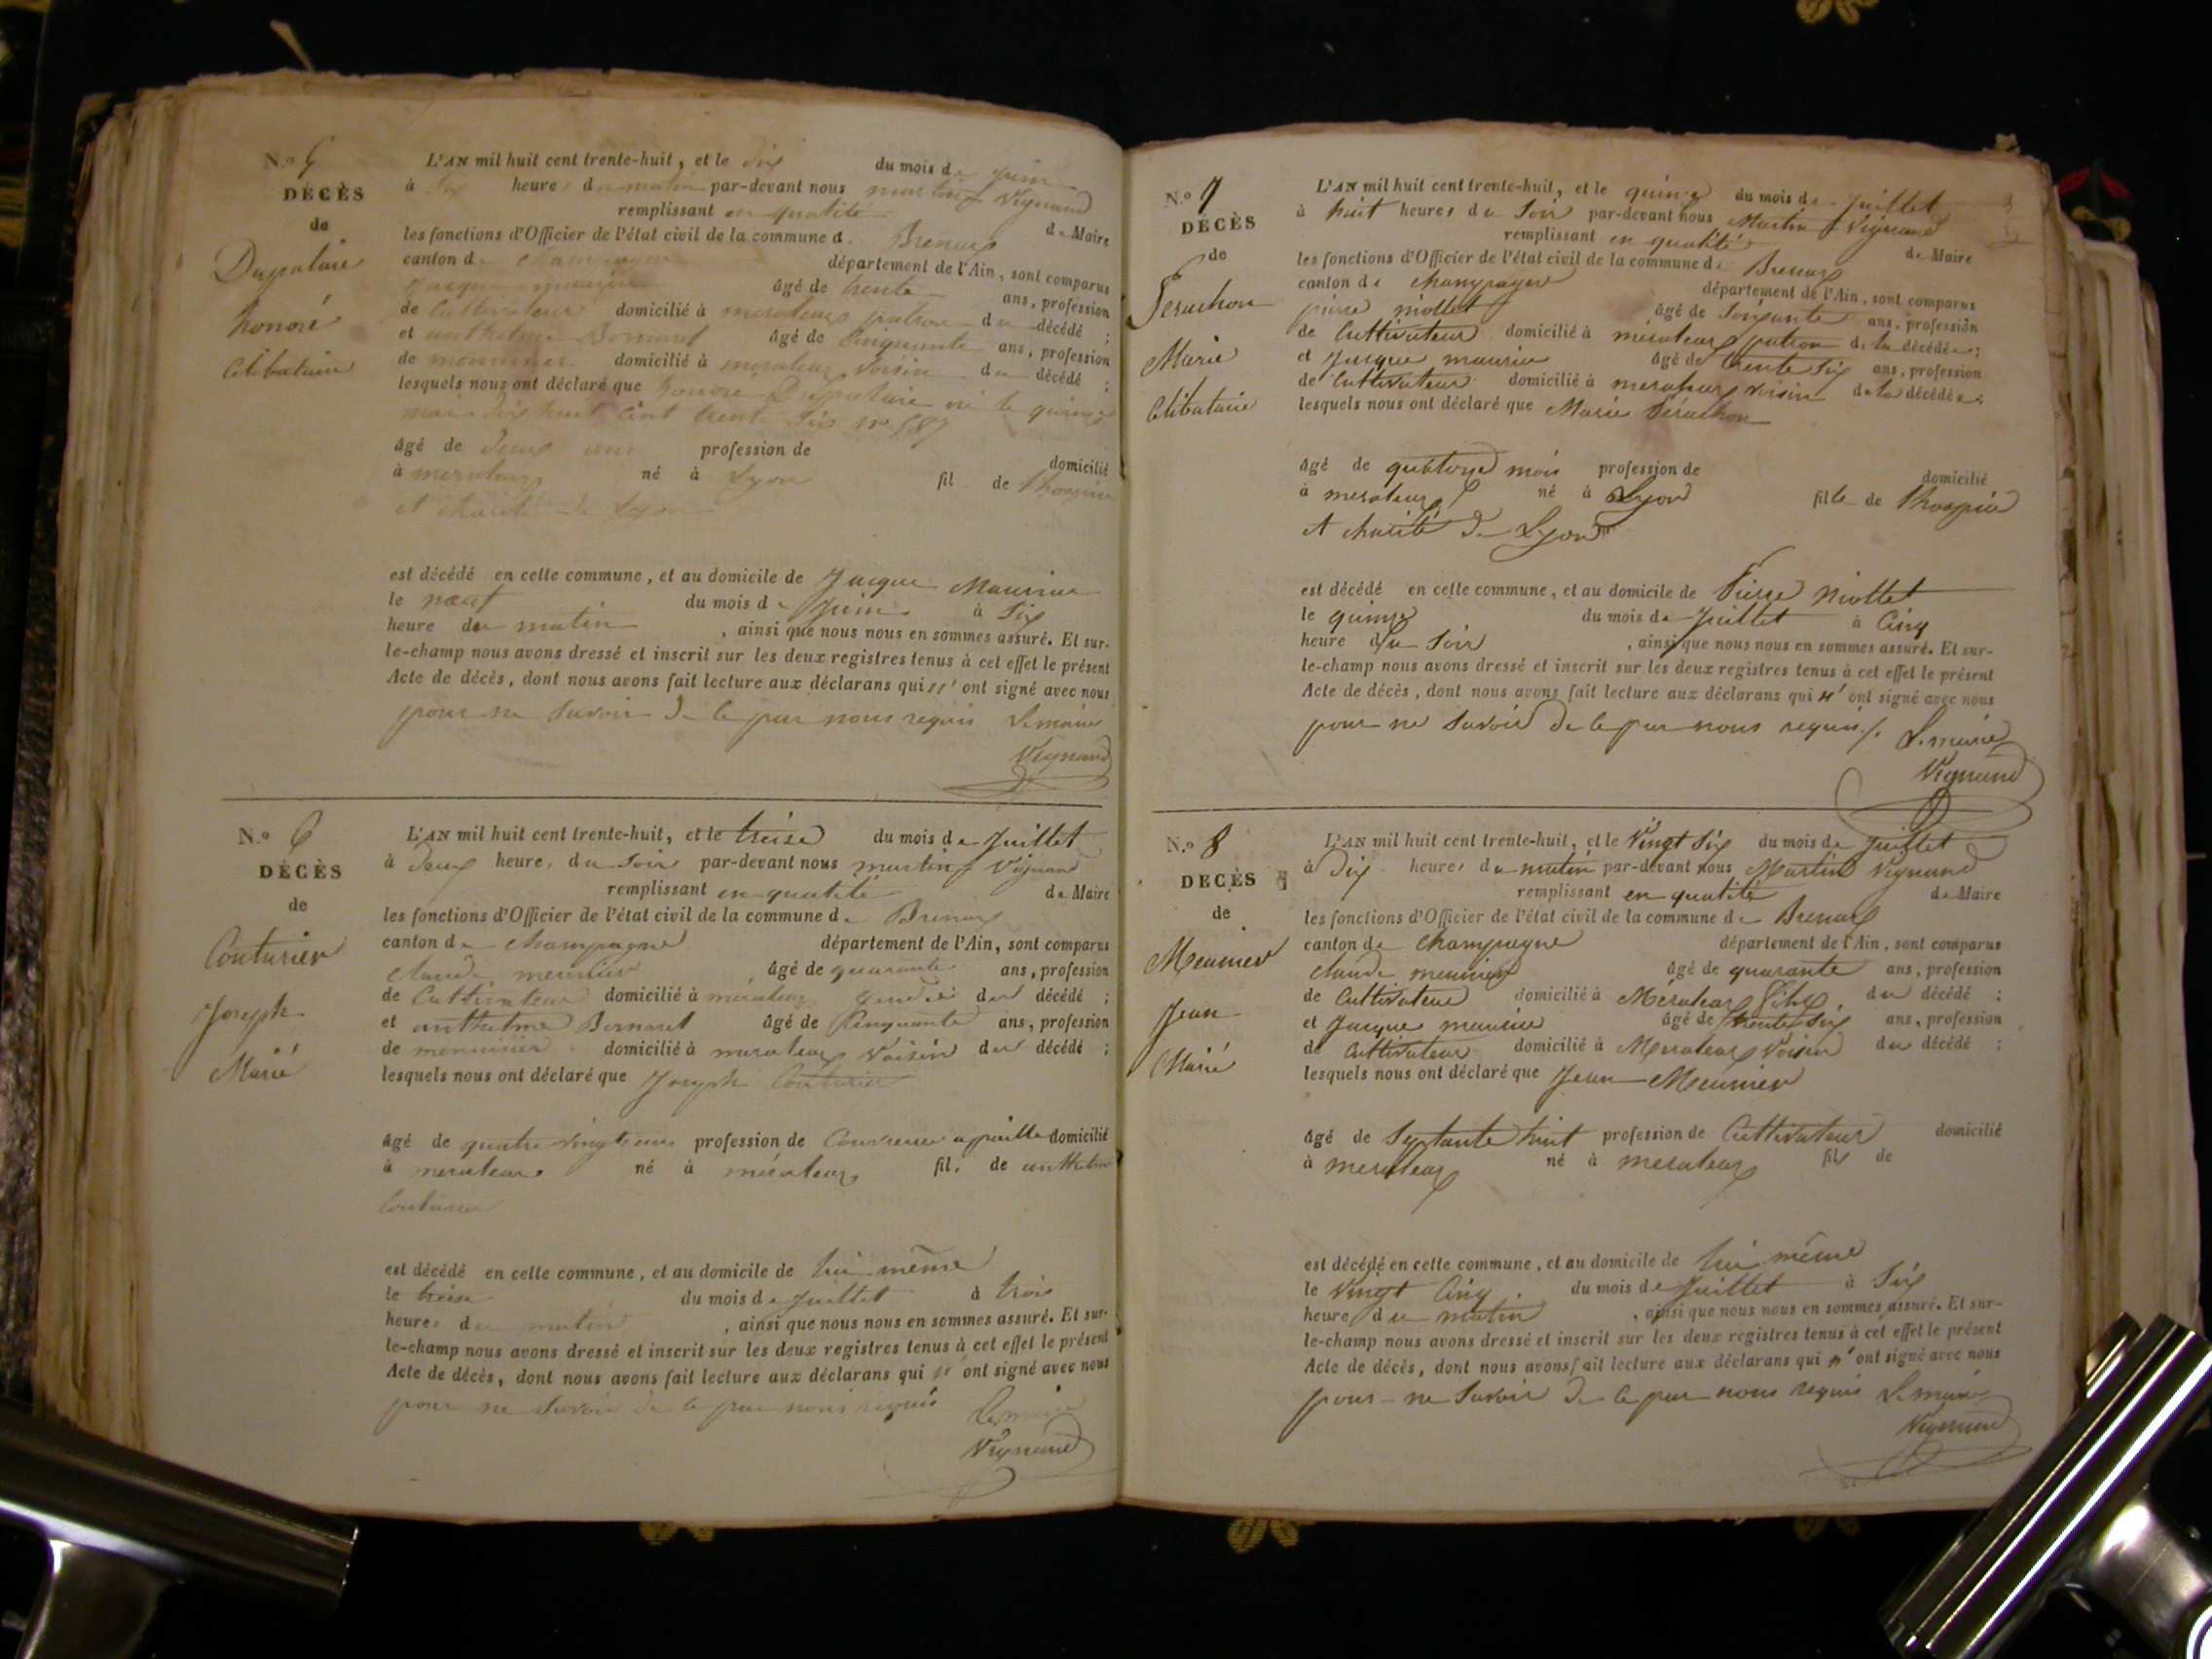 N.o 5
DÉCÈS
de
Dupataire
honoré
Célibataire
L'AN mil huit cent trente-huit, et le dix du mois de juin
à six heure du matin par-devant nous martin Vignand
remplissant en qualité de Maire
les fonctions d'Officier de l'état civil de la commune d. Brenaz
canton de Champagne département de l'Ain, sont comparus
Jacque maurin âgé de trente ans, profession
de Cultivateur domicilié à merateaz patron du décédé ;
et anthelme Bornaret âgé de Cinquante ans, profession
de menuisier domicilié à merateaz Voisin du décédé ;
lesquels nous ont déclaré que honoré Dupataire né le quinze
mai dix huit Cent trente six n°
âgé de Deux ans profession de domicilié
à merateaz né à Lyon fil de lhospice
et charité de Lyon
est décédé en cette commune, et au domicile de Jacque Maurin
le neuf du mois de Juin à Six
heure du matin , ainsi que nous nous en sommes assuré. Et sur-
le-champ nous avons dressé et inscrit sur les deux registres tenus à cet effet le présent
Acte de décès, dont nous avons fait lecture aux déclarans qui n' ont signé avec nous
pour ne Savoir de ce par nous requis Le maire
Vignand
N.o 6
DÉCÈS
de
Couturier
Joseph
Marié
L'AN mil huit cent trente-huit, et le treise du mois de Juillet
à Deux heure, du Soir par-devant nous martin Vignand
remplissant en qualité de Maire
les fonctions d'Officier de l'état civil de la commune d. Brenaz
canton de Champagne département de l'Ain, sont comparus
Claude meunier âgé de quarante ans, profession
de Cultivateur domicilié à mérateaz du décédé ;
et anthelme Bornaret âgé de Cinquante ans, profession
de menuisier domicilié à merateaz Voisin du décédé ;
lesquels nous ont déclaré que Joseph Couturier
âgé de quatre vingt ans profession de Couvreur a paille domicilié
à merateaz né à mérateaz fils de anthelme
Couturier
est décédé en cette commune, et au domicile de lui même
le treise du mois de Juillet à trois
heures du matin , ainsi que nous nous en sommes assuré. Et sur-
le-champ nous avons dressé et inscrit sur les deux registres tenus à cet effet le présent
Acte de décès, dont nous avons fait lecture aux déclarans qui n' ont signé avec nous
pour ne Savoir de ce par nous requis Le maire
Vignand
N.o 7
DÉCÈS
de
Perachon
Marie
Célibataire
L'AN mil huit cent trente-huit, et le quinze du mois de Juillet
à huit heures du Soir par-devant nous Martin Vignand
remplissant en qualité de Maire
les fonctions d'Officier de l'état civil de la commune d. Brenaz
canton de Champagne département de l'Ain, sont comparus
pierre niollet âgé de Soixante ans, profession
de Cultivateur domicilié à mérateaz patron de la décédée ;
et Jacque maurin âgé de trente Six ans, profession
de Cultivateur domicilié à merateaz voisin de la décédée ;
lesquels nous ont déclaré que Marie Pérachon
âgé de quatorze mois profession de domicilié
à merateaz né à Lyon fille de lhospice
et charité de Lyon
est décédé en cette commune, et au domicile de Pierre Niollet
le quinze du mois de Juillet à Cinq
heure du Soir , ainsi que nous nous en sommes assuré. Et sur-
le-champ nous avons dressé et inscrit sur les deux registres tenus à cet effet le présent
Acte de décès, dont nous avons fait lecture aux déclarans qui n' ont signé avec nous
pour ne Savoir de ce par nous requis /. Le maire
Vignand
N.o 8
DÉCÈS
de
Meunier
Jean
Marié
L'AN mil huit cent trente-huit, et le Vingt Six du mois de Juillet
à Dix heures du matin par-devant nous Martin Vignand
remplissant en qualité de Maire
les fonctions d'Officier de l'état civil de la commune de Brenaz
canton de Champagne département de l'Ain, sont comparus
Claude meunier âgé de quarante ans, profession
de Cultivateur domicilié à Mérateaz fils du décédé ;
et Jacque maurin âgé de trente Six ans, profession
de Cultivateur domicilié à Merateaz Voisin du décédé ;
lesquels nous ont déclaré que Jean Meunier
âgé de Septante huit profession de Cultivateur domicilié
à merateaz né à merateaz fils de
est décédé en cette commune, et au domicile de lui même
le Vingt Cinq du mois de Juillet à Six
heure du matin , ainsi que nous nous en sommes assuré. Et sur-
le-champ nous avons dressé et inscrit sur les deux registres tenus à cet effet le présent
Acte de décès, dont nous avons fait lecture aux déclarans qui n' ont signé avec nous
pour ne Savoir de ce par nous requis Le maire
Vignand